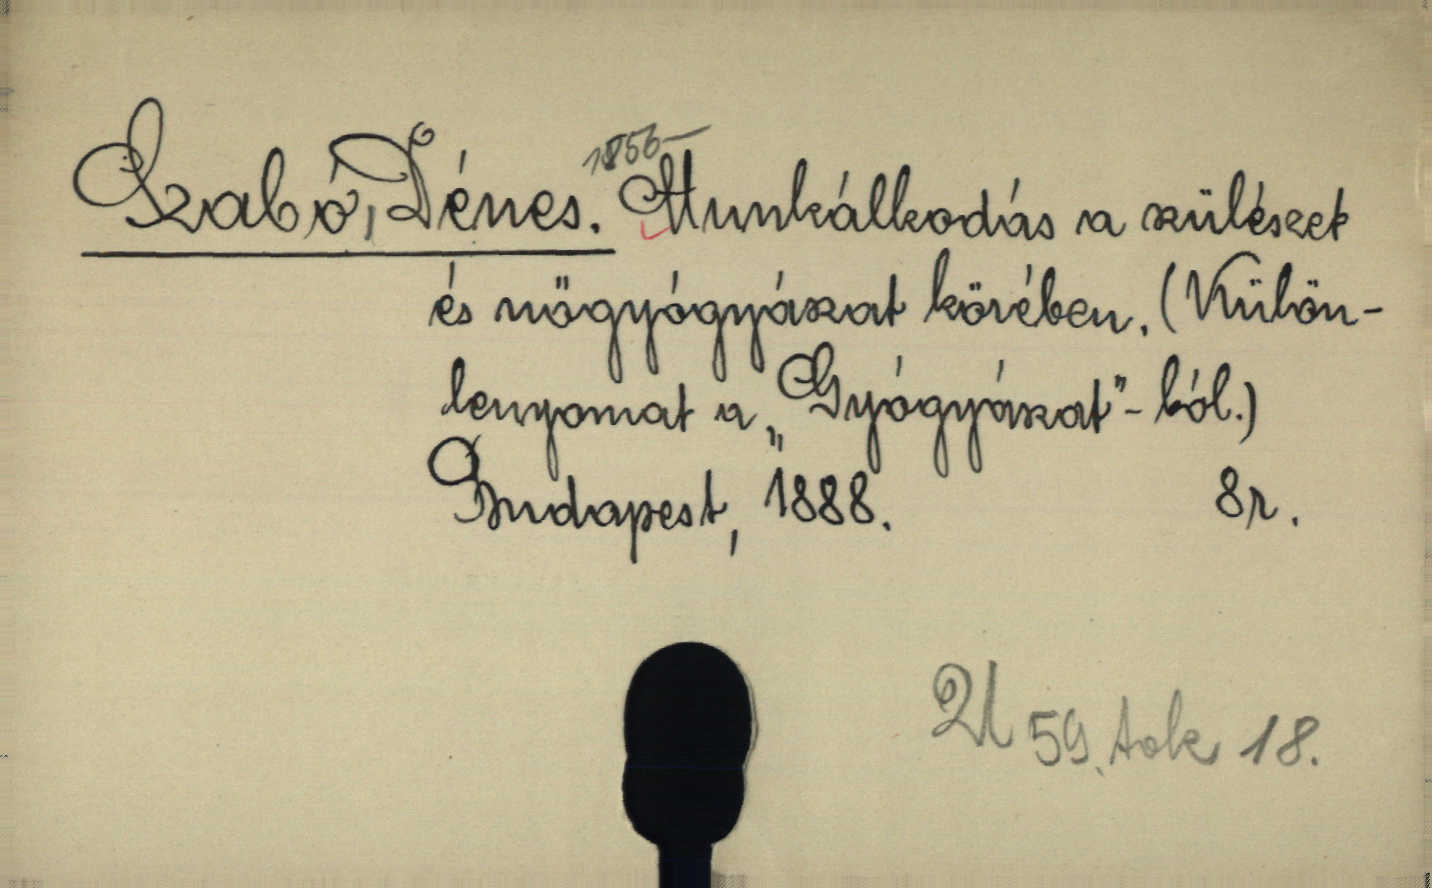 Szabó, Dénes. 1856- Munkálkodás a szülészet
és nőgyógyászat körében. (Külön-
lenyomat a „Gyógyászat"-ból.)
Budapest, 1888. 8r.
U 59. tok 18.